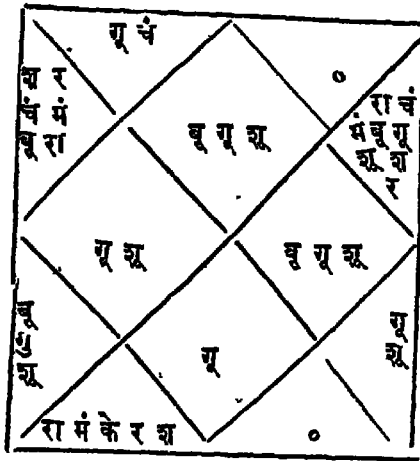 गू चं
०
श र
चं मं
बू रा
रा चं
मं बू गू
शू श
र
बू गू शू
गू शू
बू गू शू
बू
गु
शू
गू
गू
शू
रा मं के र श
०